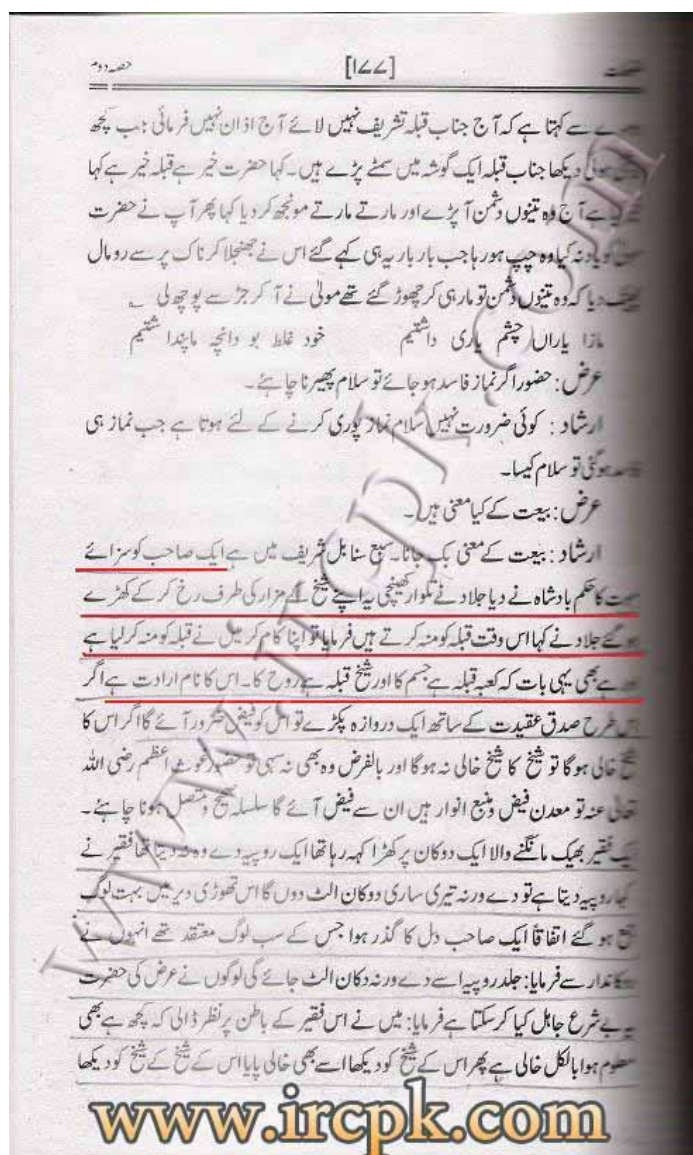 حصہ دوم
[۱۷۷]
سے کہتا ہے کہ آج جناب قبلہ تشریف نہیں لائے آج اذان نہیں فرمائی جب کچھ
ہوئی دیکھا جناب قبلہ ایک گوشہ میں سمٹے پڑے ہیں۔ کہا حضرت خیر ہے قبلہ خیر ہے کہا
ہے آج وہ تینوں دشمن آ پڑے اور مارتے مارتے مونجھ کر دیا کہا پھر آپ نے حضرت
کو یاد نہ کیا وہ چپ ہو رہا جب بار بار یہ ہی کہے گئے اس نے جھنجلا کر ناک پر سے رومال
دیا کہ وہ تینوں دشمن تو مار ہی کر چھوڑ گئے تھے مولیٰ نے آ کر جڑ سے پوچھ لی ؎
مازا یاراں چشم یاری داشتیم خود غلط بو دانچہ ماپندا شتیم
عرض : حضور اگر نماز فاسد ہو جائے تو سلام پھیرنا چاہئے۔
ارشاد : کوئی ضرورت نہیں سلام نماز پوری کرنے کے لئے ہوتا ہے جب نماز ہی
ہو گئی تو سلام کیسا۔
عرض : بیعت کے کیا معنی ہیں۔
ارشاد : بیعت کے معنی بک جانا۔ سبع سنابل شریف میں ہے ایک صاحب کو سزائے
موت کا حکم بادشاہ نے دیا جلاد نے تلوار کھینچی یہ اپنے شیخ کے مزار کی طرف رخ کر کے کھڑے
ہو گئے جلاد نے کہا اس وقت قبلہ کو منہ کرتے ہیں فرمایا تو اپنا کام کر میں نے قبلہ کو منہ کر لیا ہے
ہے بھی یہی بات کہ کعبہ قبلہ ہے جسم کا اور شیخ قبلہ ہے روح کا۔ اس کا نام ارادت ہے اگر
اس طرح صدق عقیدت کے ساتھ ایک دروازہ پکڑے تو اس کو فیض ضرور آئے گا اگر اس کا
شیخ خالی ہو گا تو شیخ کا شیخ خالی نہ ہو گا اور بالفرض وہ بھی نہ سہی تو حضور غوث اعظم رضی اللہ
تعالیٰ عنہ تو معدن فیض و منبع انوار ہیں ان سے فیض آئے گا سلسلہ صحیح و متصل ہونا چاہئے۔
ایک فقیر بھیک مانگنے والا ایک دوکان پر کھڑا کہہ رہا تھا ایک روپیہ دے وہ نہ دیتا تھا فقیر نے
کہا روپیہ دیتا ہے تو دے ورنہ تیری ساری دوکان الٹ دوں گا اس تھوڑی دیر میں بہت لوگ
جمع ہو گئے اتفاقاً ایک صاحب دل کا گذر ہوا جس کے سب لوگ معتقد تھے انہوں نے
دوکاندار سے فرمایا : جلد روپیہ اسے دے ورنہ دکان الٹ جائے گی لوگوں نے عرض کی حضرت
یہ بے شرع جاہل کیا کر سکتا ہے فرمایا : میں نے اس فقیر کے باطن پر نظر ڈالی کہ کچھ ہے بھی
معلوم ہوا بالکل خالی ہے پھر اس کے شیخ کو دیکھا اسے بھی خالی پایا اس کے شیخ کے شیخ کو دیکھا
www.ircpk.com
www.ircpk.com